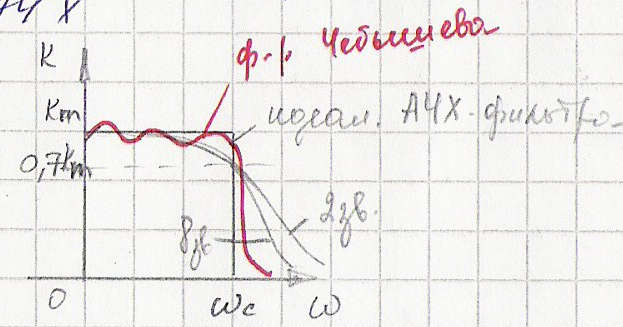 АЧХ
ф-я Чебышева
K
Km
идеал. АЧХ-фильтра
0,7Km
2зв.
8зв
0
ωc
ω